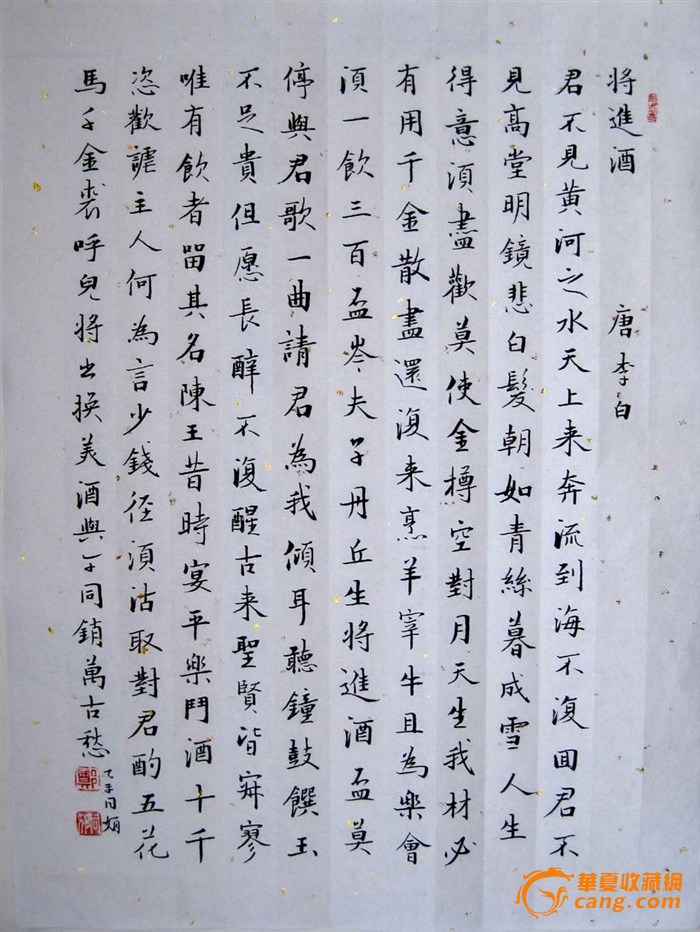 將進酒 唐李白
君不見黃河之水天上来奔流到海不復回君不
見高堂明鏡悲白髮朝如青絲暮成雪人生
得意須盡歡莫使金樽空對月天生我材必
有用千金散盡還復来烹羊宰牛且為樂會
須一飲三百盃岑夫子丹丘生將進酒盃莫
停與君歌一曲請君為我傾耳聽鐘鼓饌玉
不足貴但愿長醉不復醒古来聖賢皆寂寥
唯有飲者留其名陳王昔時宴平樂鬥酒十千
恣歡謔主人何為言少錢径須沽取對君酌五花
馬千金裘呼兒將出換美酒與尔同銷萬古愁
華夏收藏網
cang.com